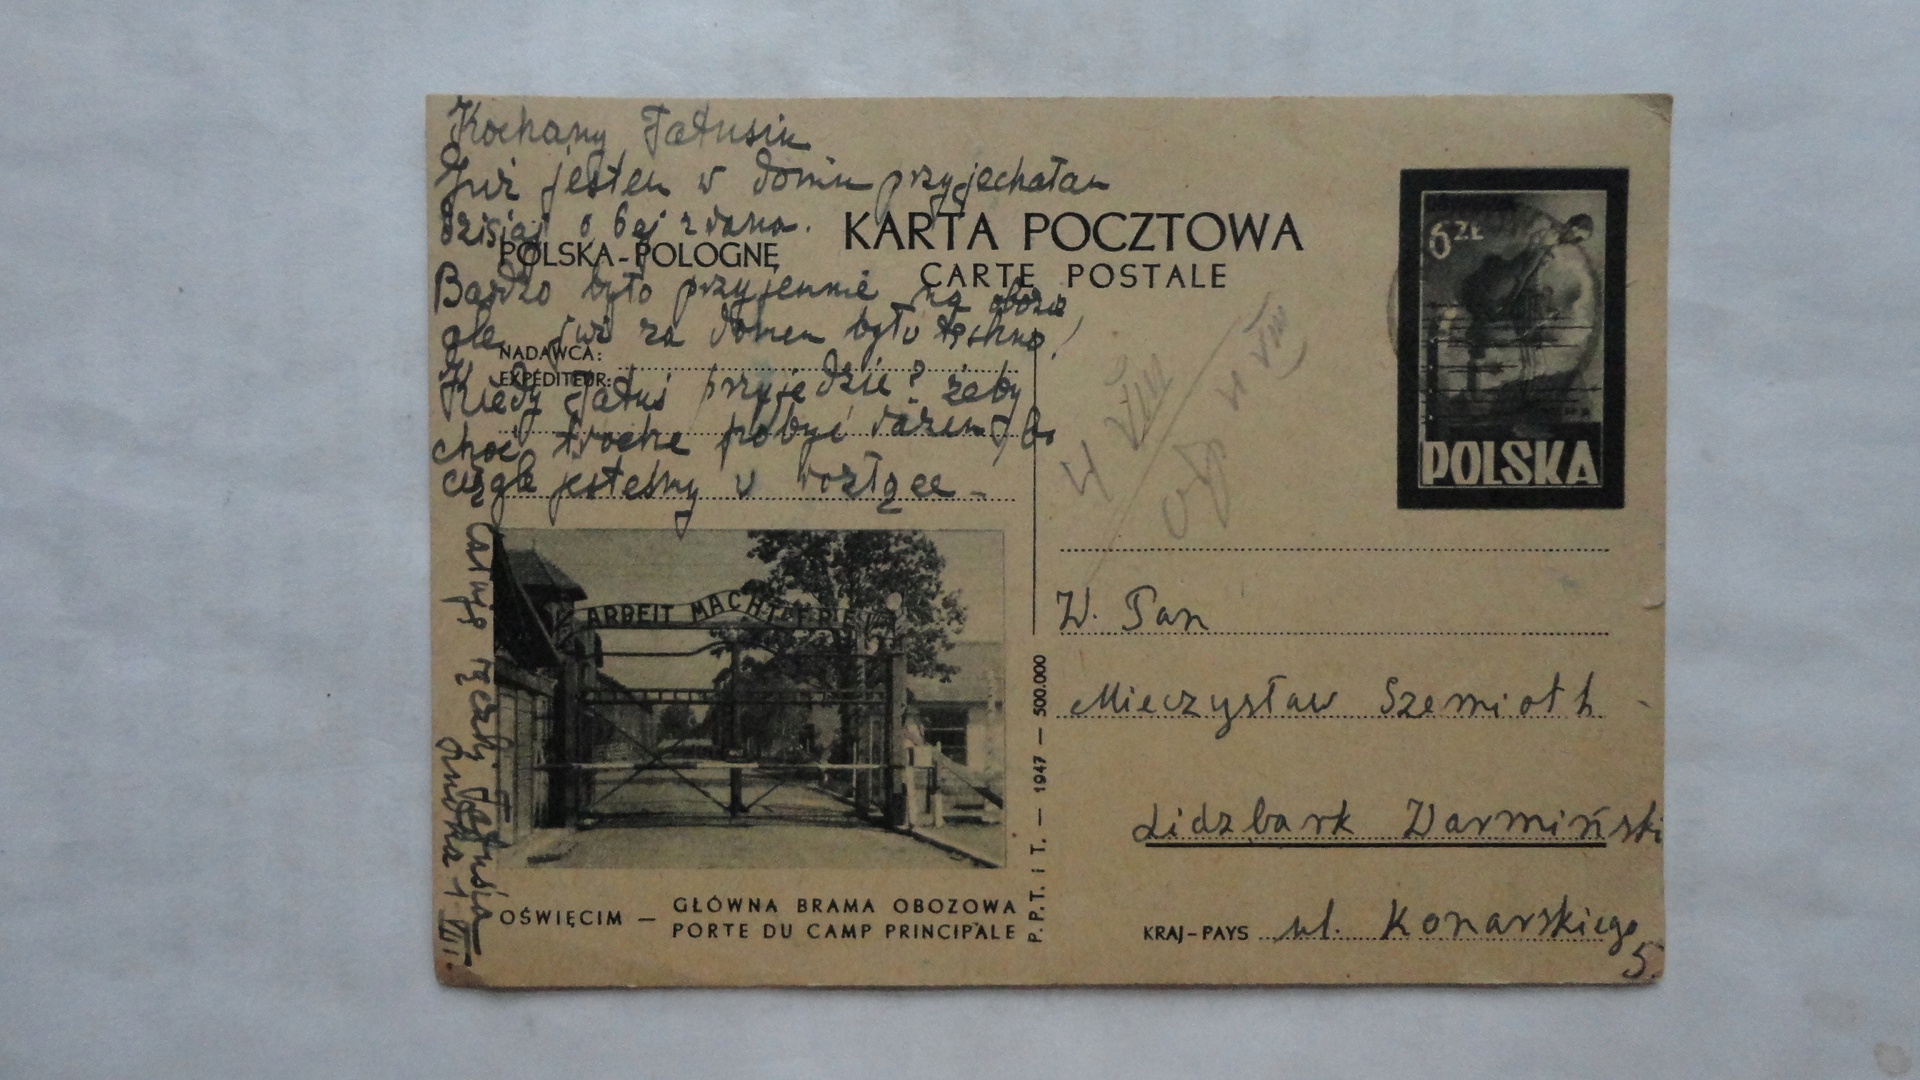 Kochany Tatusiu
Już jestem w domu przyjechałam
dzisiaj o 6ej z rana.
POLSKA-POLOGNE
KARTA POCZTOWA
CARTE POSTALE
Bardzo było przyjemnie na obozie
ale już za domem było tęskno!
NADAWCA:
EXPÉDITEUR:
Kiedy Tatuś przyjedzie? żeby
choć troche pobyć razem, bo
ciągle jesteśmy w rozłące –
całuję rączki Tatusia
1 VIII.
4 VIII
6 ZŁ
POLSKA
ARBEIT MACHT FREI
OŚWIĘCIM — GŁÓWNA BRAMA OBOZOWA
PORTE DU CAMP PRINCIPALE
P.P.T. i T. — 1947 — 500.000
W. Pan
Mieczysław Szemioth
Lidzbark Warmiński
KRAJ-PAYS ul. Konarskiego
5.